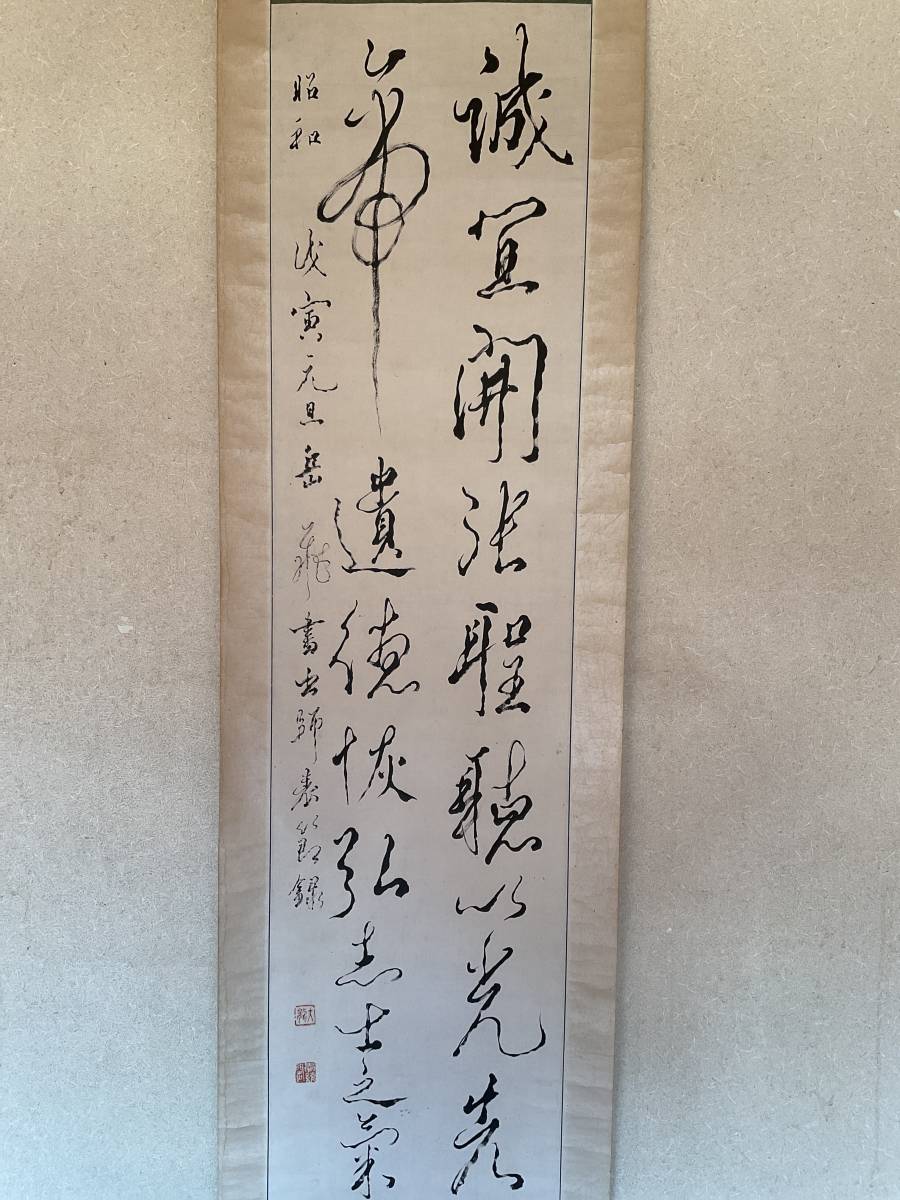 誠宜開張聖聽以光先
帝遺德恢弘志士之氣
昭和戊寅元旦岳 書出師表節錄